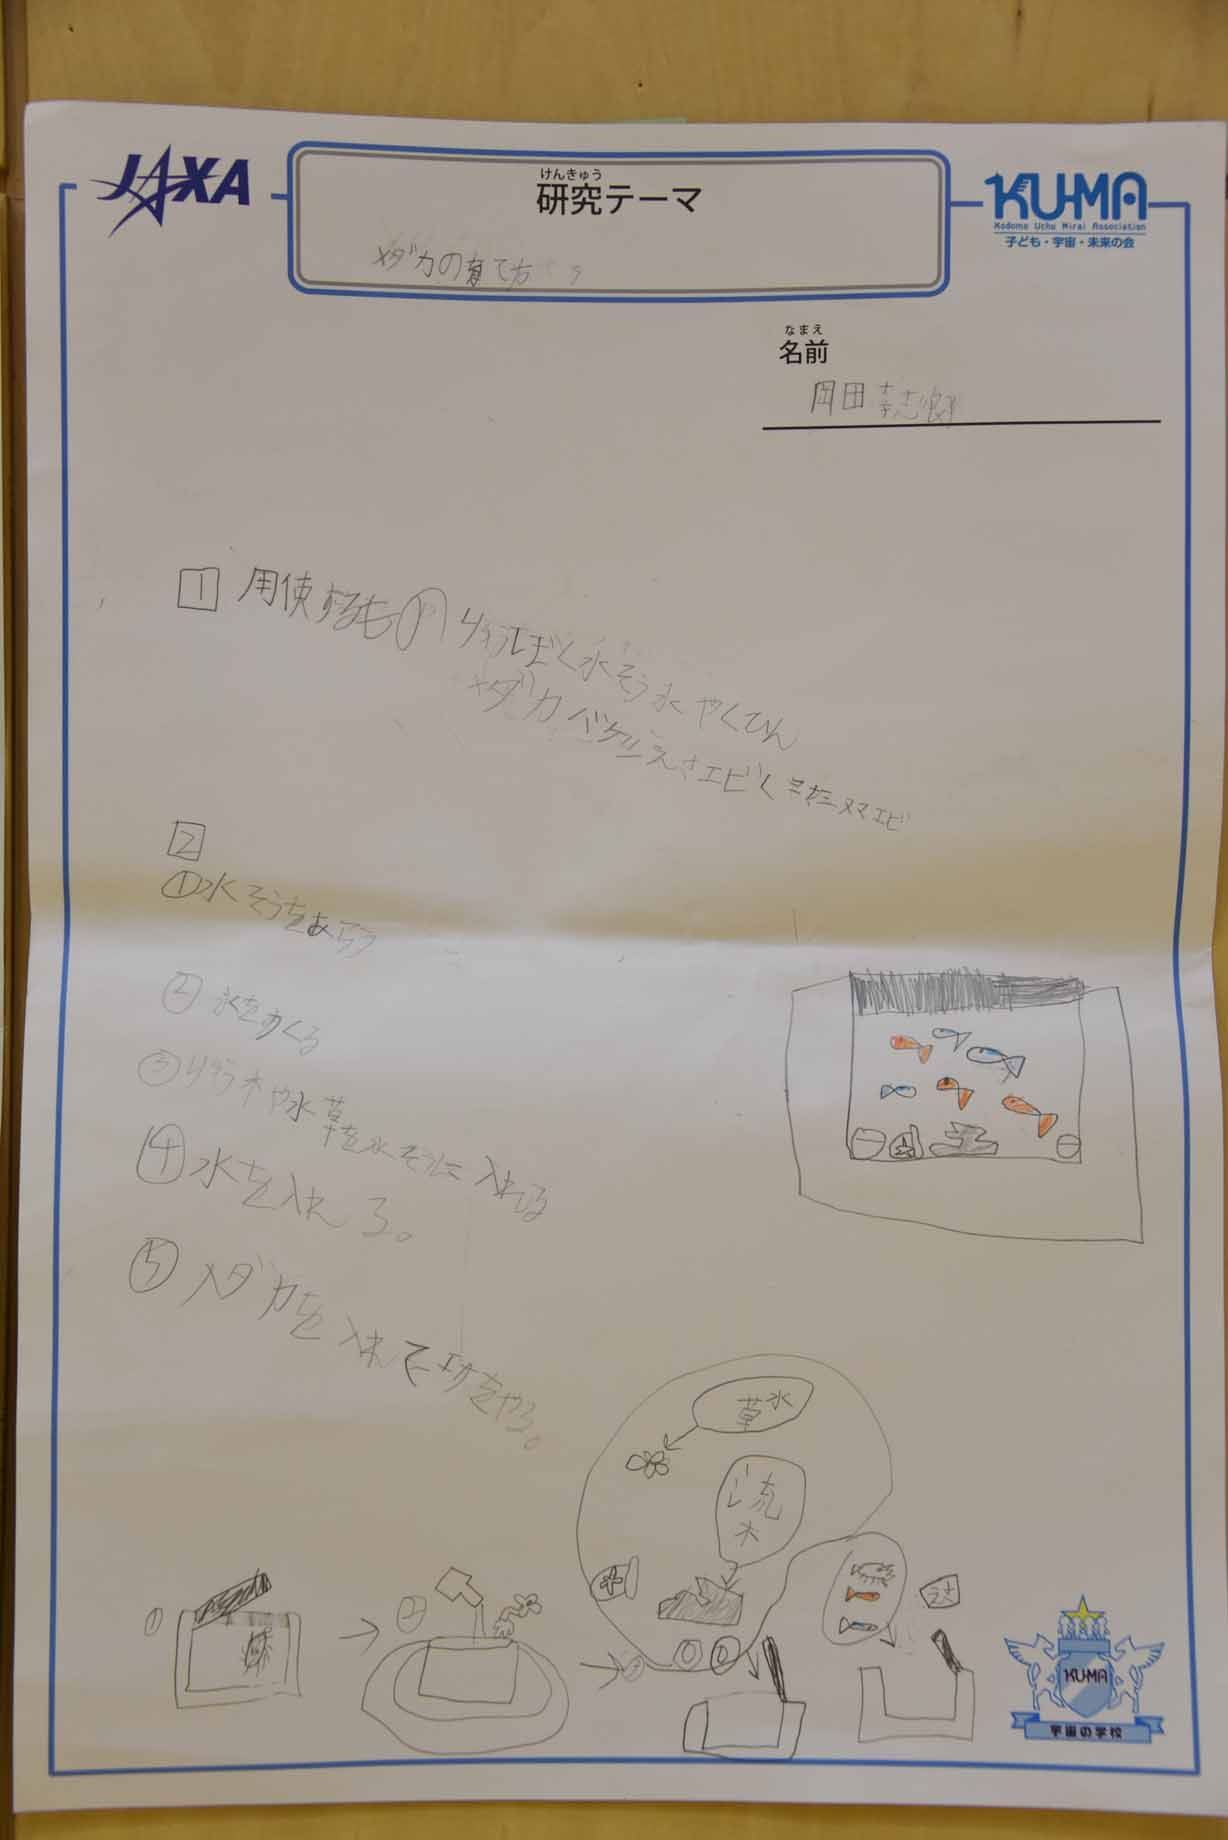 JAXA
けんきゅう
研究テーマ
メダカの育て方
KU-MA
Kodomo Uchu Mirai Association
子ども・宇宙・未来の会
なまえ
名前
岡田
1 用使するもの
水そう 水 やくひん
メダカ バケツ えさ エビ ヌマエビ
2
①水そうをあらう
②水をつくる
③りゅう木や水草を水そうに入れる
④水を入れる。
⑤メダカを入れてエサをやる。
水草
流木
えさ
①
②
③
KUMA
宇宙の学校